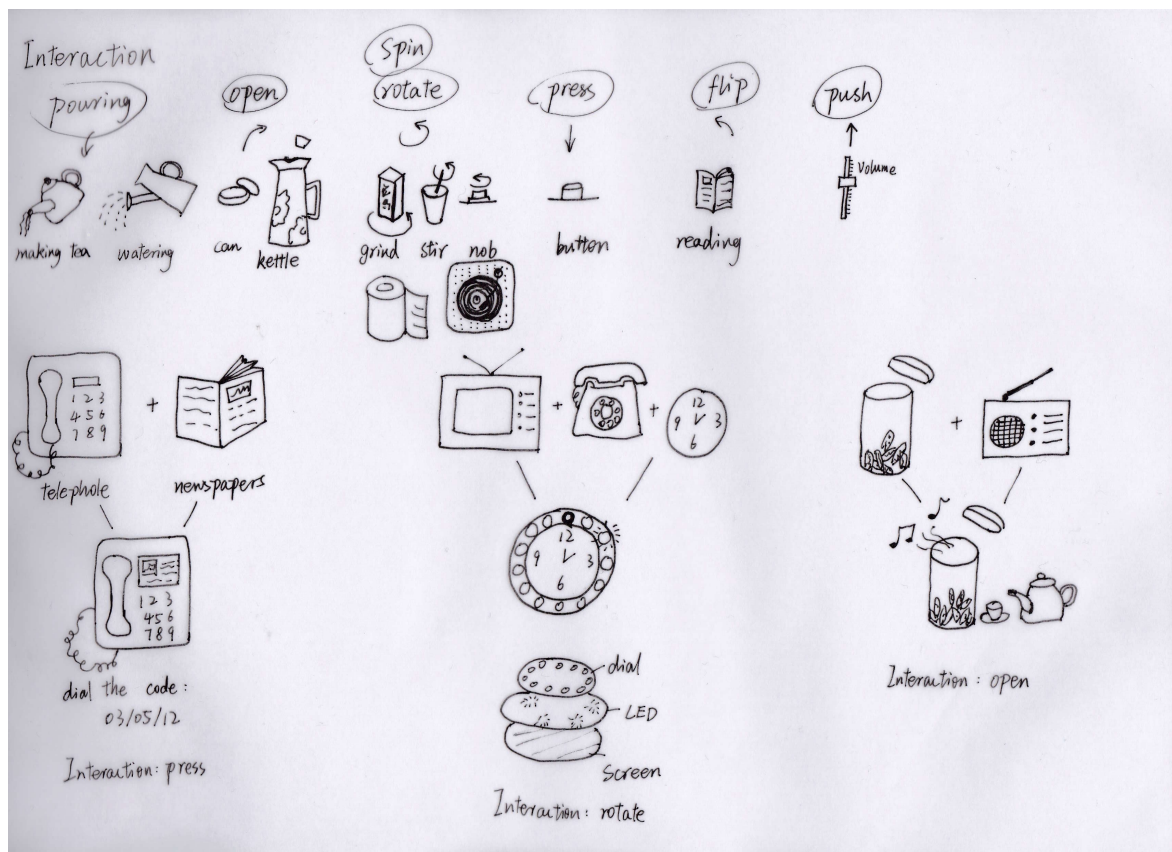 Interaction
pouring
open
Spin
rotate
press
flip
push
Volume
making tea
watering
can
kettle
grind
stir
nob
button
reading
1 2 3
4 5 6
7 8 9
+
telephole
newspapers
+
+
12
9 3
6
+
1 2 3
4 5 6
7 8 9
dial the code:
03/05/12
Interaction: press
12
9 3
6
dial
LED
Screen
Interaction: rotate
Interaction: open